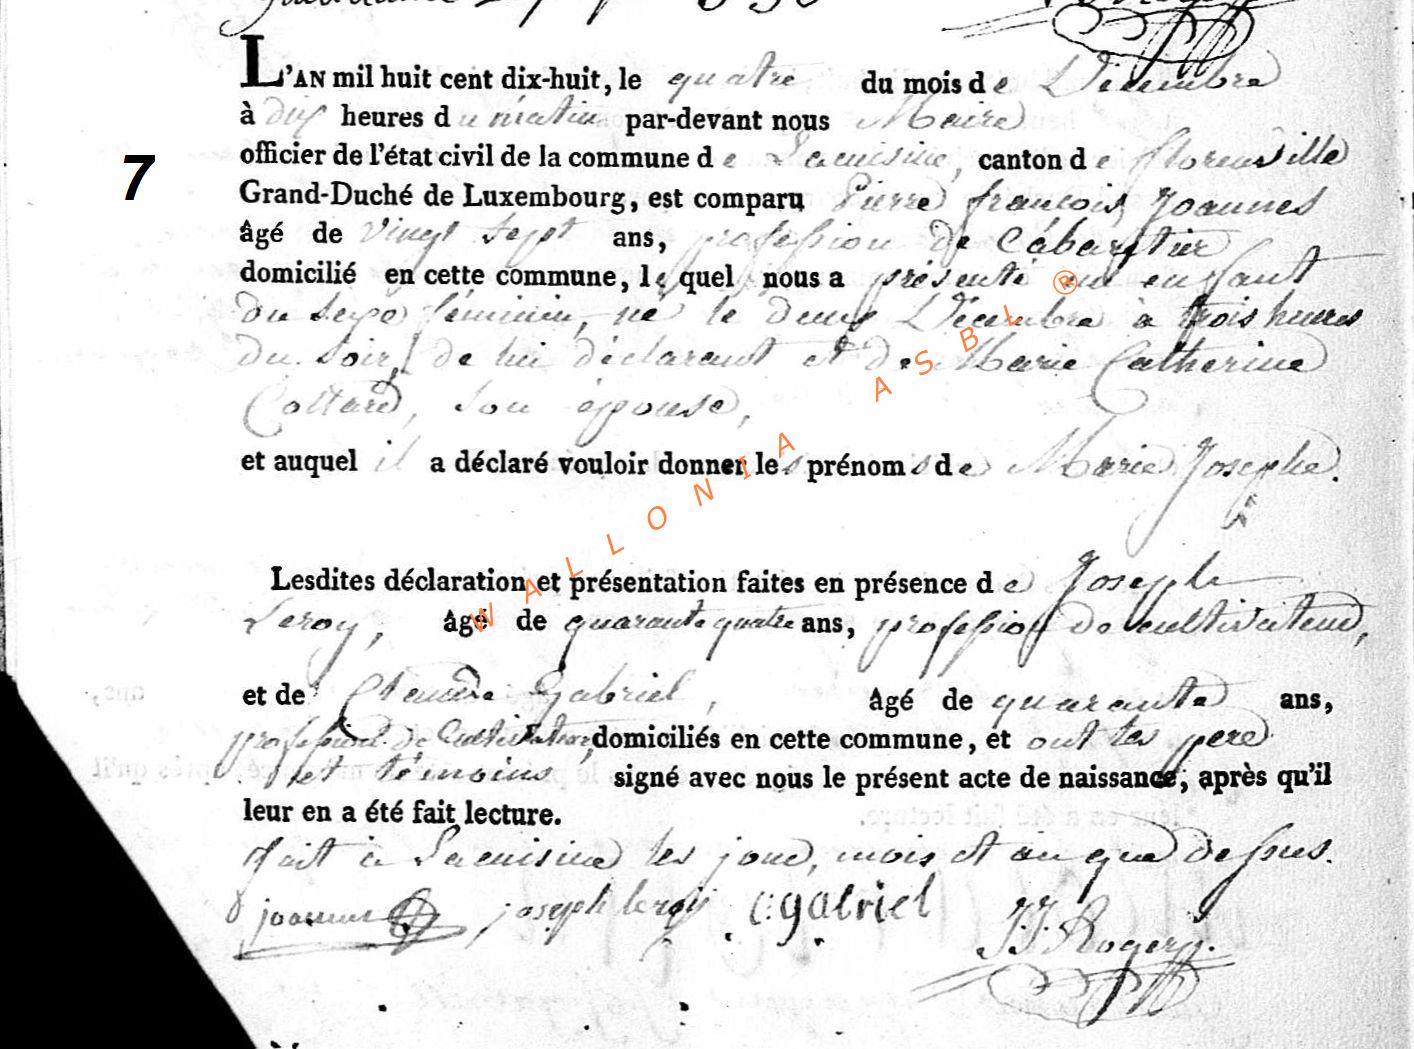 L'AN mil huit cent dix-huit, le quatre du mois de Décembre
à dix heures du matin par-devant nous Maire
officier de l'état civil de la commune de Lacuisine, canton de florenville
Grand-Duché de Luxembourg, est comparu Pierre françois Joannes
âgé de vingt sept ans, profession de Cabaretier
domicilié en cette commune, lequel nous a présenté un enfant
du sexe féminin, né le deux Décembre à trois heures
du soir, de lui déclarant et de Marie Catherine
Collard, son épouse,
et auquel il a déclaré vouloir donner les prénoms de Marie Josephe.
7
WALLONIA ASBL ®
Lesdites déclaration et présentation faites en présence de Joseph
Leroy, âgé de quarante quatre ans, profession de cultivateur,
et de Gabriel, âgé de quarante ans,
profession de Cultivateur, domiciliés en cette commune, et ont les pere
et témoins signé avec nous le présent acte de naissance, après qu'il
leur en a été fait lecture.
fait à Lacuisine les jour, mois et an que dessus.
joannes joseph leroy C: gabriel J.J. Rogery.